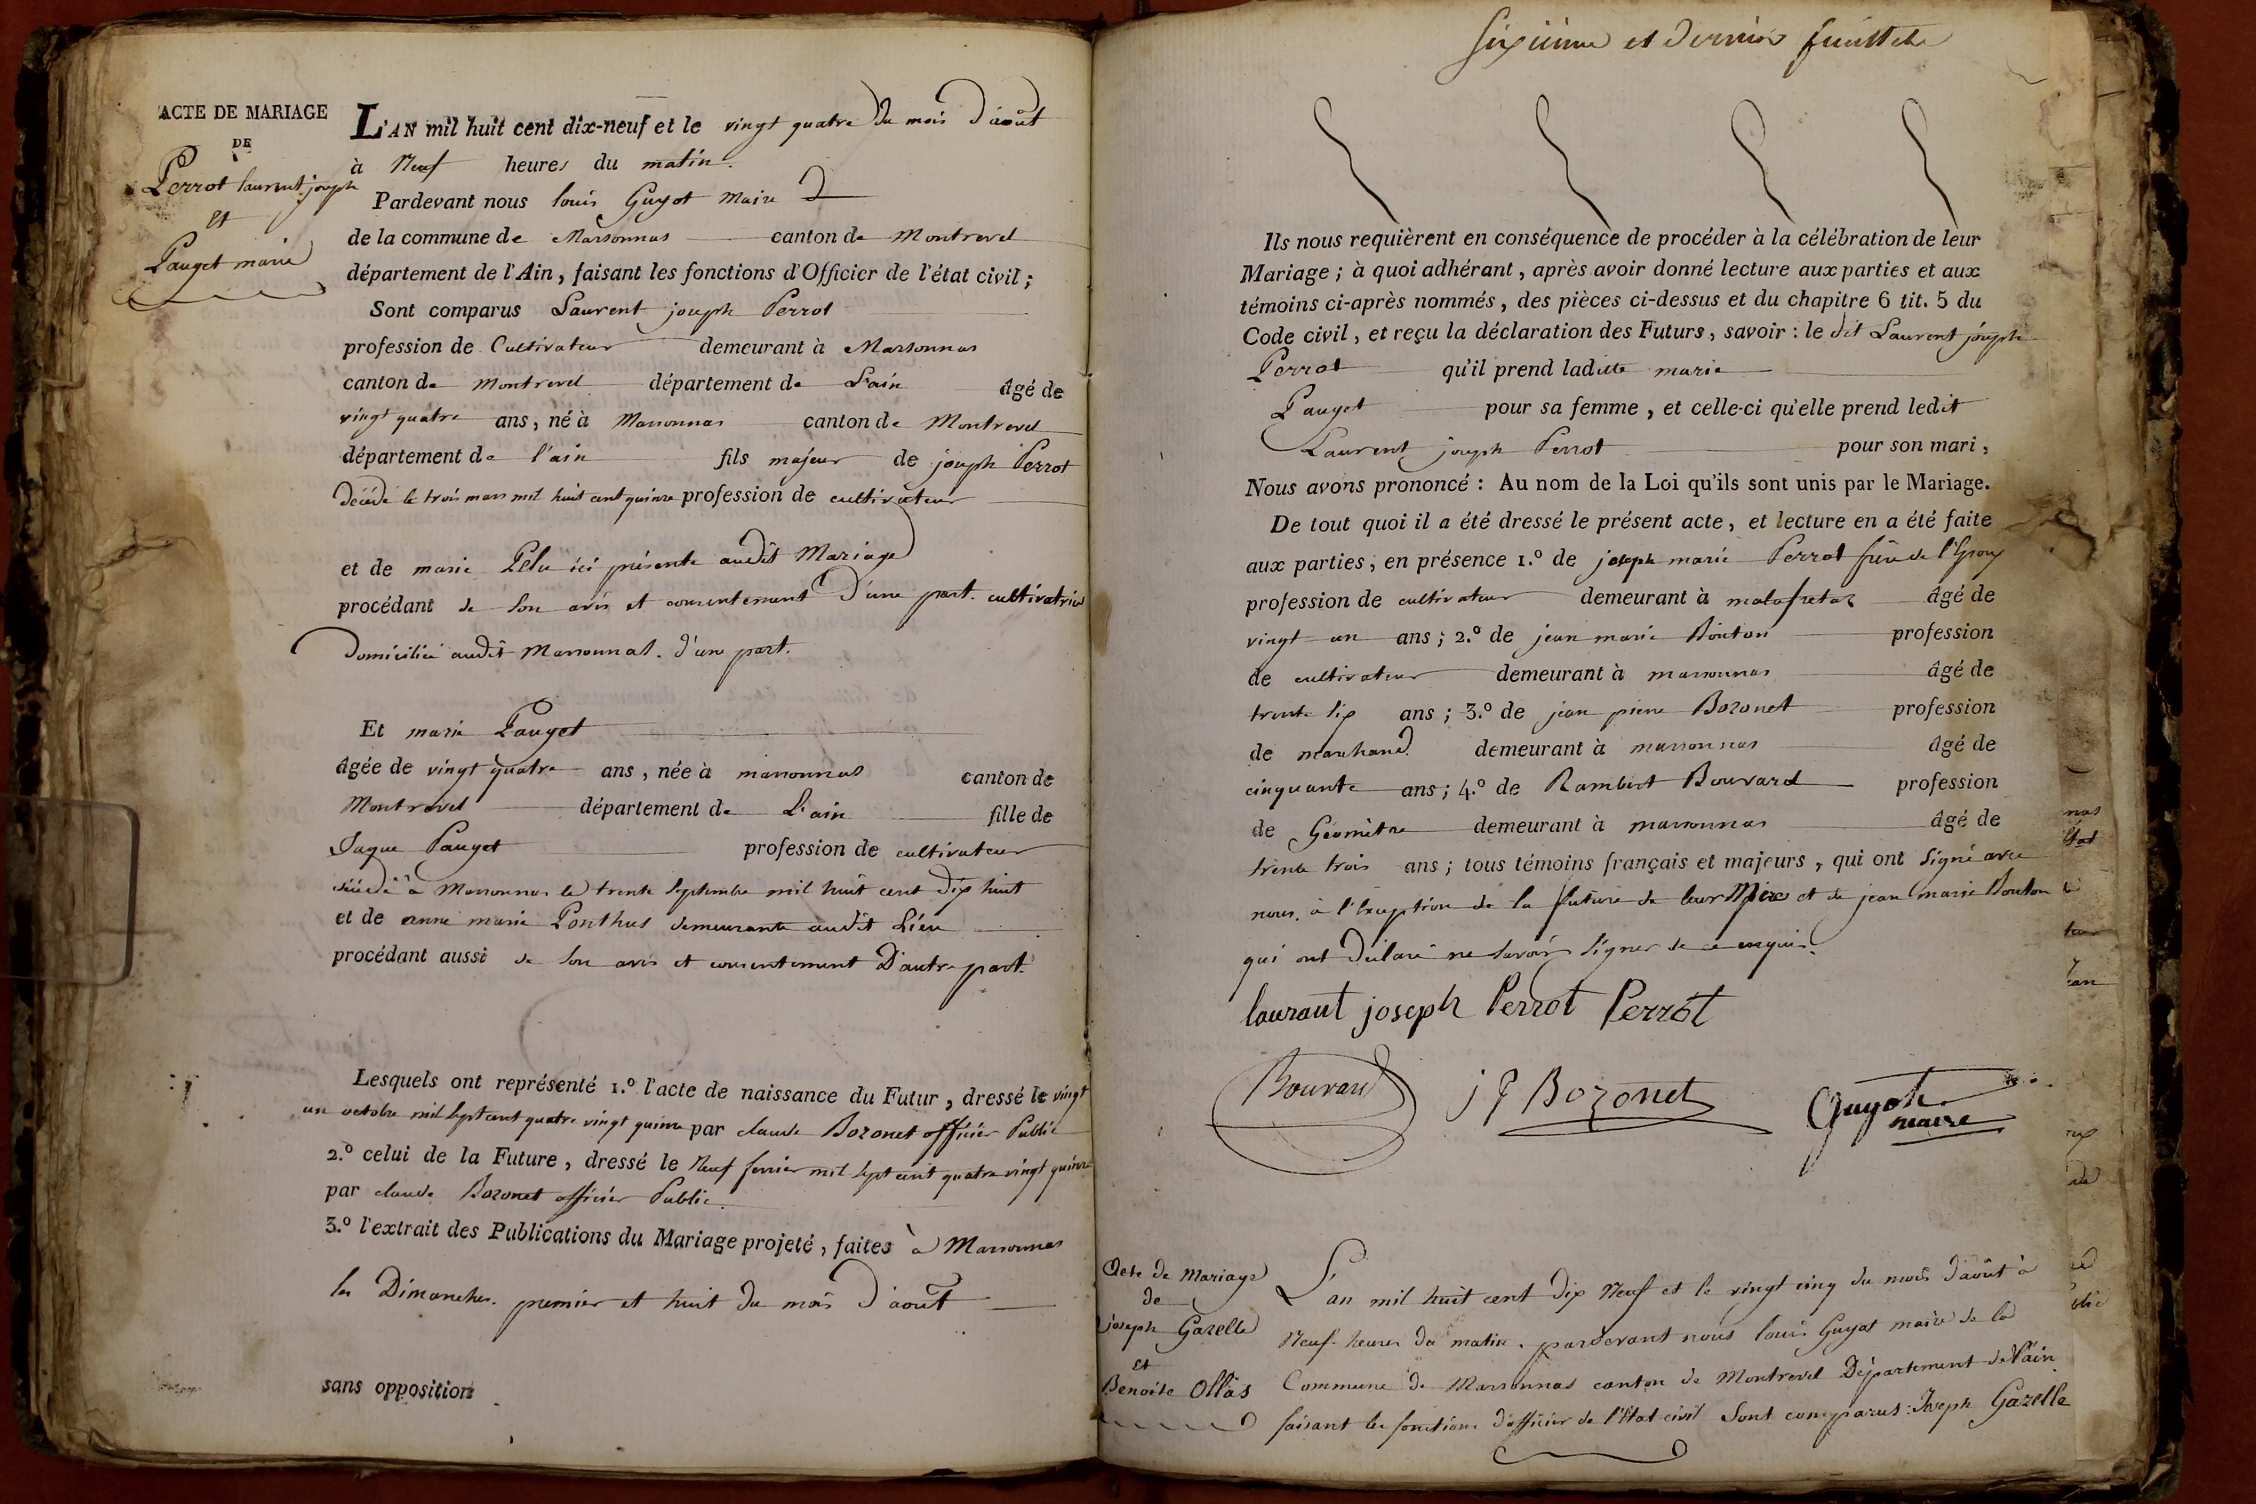 ACTE DE MARIAGE
DE
Perrot laurent joseph
et
Pauget marie
L'AN mil huit cent dix-neuf et le vingt quatre du mois d'août
à Neuf heures du matin.
Pardevant nous louis Guyot Maire
de la commune de Marsonnas canton de Montrevel
département de l'Ain, faisant les fonctions d'Officier de l'état civil;
Sont comparus Laurent joseph Perrot
profession de Cultivateur demeurant à Marsonnas
canton de Montrevel département de L'ain âgé de
vingt quatre ans, né à Marsonnas canton de Montrevel
département de l'ain fils majeur de joseph Perrot
décédé le trois mars mil huit cent quinze profession de cultivateur
et de marie Pelu ici présente audit Mariage
procédant de son avis et consentement d'une part. cultivatrice
domiciliée audit Marsonnas. d'une part.
Et marie Pauget
âgée de vingt quatre ans, née à marsonnas canton de
Montrevel département de L'ain fille de
Jaque Pauget profession de cultivateur
décédé à Marsonnas le trente Septembre mil huit cent dix huit
et de anne marie Ponthus demeurante audit Lieu
procédant aussi de son avis et consentement D'autre part.
Lesquels ont représenté 1.º l'acte de naissance du Futur, dressé le vingt
un octobre mil Sept cent quatre vingt quinze par claude Bozonet officier Public
2.º celui de la Future, dressé le Neuf fevrier mil Sept cent quatre vingt quinze
par claude Bozonet officier Public
3.º l'extrait des Publications du Mariage projeté, faites à Marsonnas
les Dimanches. premier et huit du mois d'août
sans opposition
Sixieme et dernier feuillet
Ils nous requièrent en conséquence de procéder à la célébration de leur
Mariage; à quoi adhérant, après avoir donné lecture aux parties et aux
témoins ci-après nommés, des pièces ci-dessus et du chapitre 6 tit. 5 du
Code civil, et reçu la déclaration des Futurs, savoir: le dit Laurent joseph
Perrot qu'il prend laditte marie
Pauget pour sa femme, et celle-ci qu'elle prend ledit
Laurent joseph Perrot pour son mari,
Nous avons prononcé: Au nom de la Loi qu'ils sont unis par le Mariage.
De tout quoi il a été dressé le présent acte, et lecture en a été faite
aux parties, en présence 1.º de joseph marie Perrot frère de l'Epoux
profession de cultivateur demeurant à malafretaz âgé de
vingt un ans; 2.º de jean marie Bouton profession
de cultivateur demeurant à marsonnas âgé de
trente six ans; 3.º de jean pierre Bozonet profession
de marchand demeurant à marsonnas âgé de
cinquante ans; 4.º de Rambert Bouvard profession
de Géomètre demeurant à marsonnas âgé de
trente trois ans; tous témoins français et majeurs, qui ont signé avec
nous, à l'exception de la future de leur Mère et de jean marie Bouton
qui ont déclaré ne savoir signer de ce enquis.
laurant joseph Perrot Perrot
Bouvard J P Bozonet Guyot
maire
Acte de Mariage
de
joseph Gazelle
et
Benoite Ollas
L'an mil huit cent dix Neuf et le vingt cinq du mois d'août à
Neuf heures du matin. pardevant nous louis Guyot maire de la
Commune de Marsonnas canton de Montrevel Département de l'ain
faisant les fonctions d'officier de l'Etat civil Sont comparus: Joseph Gazelle